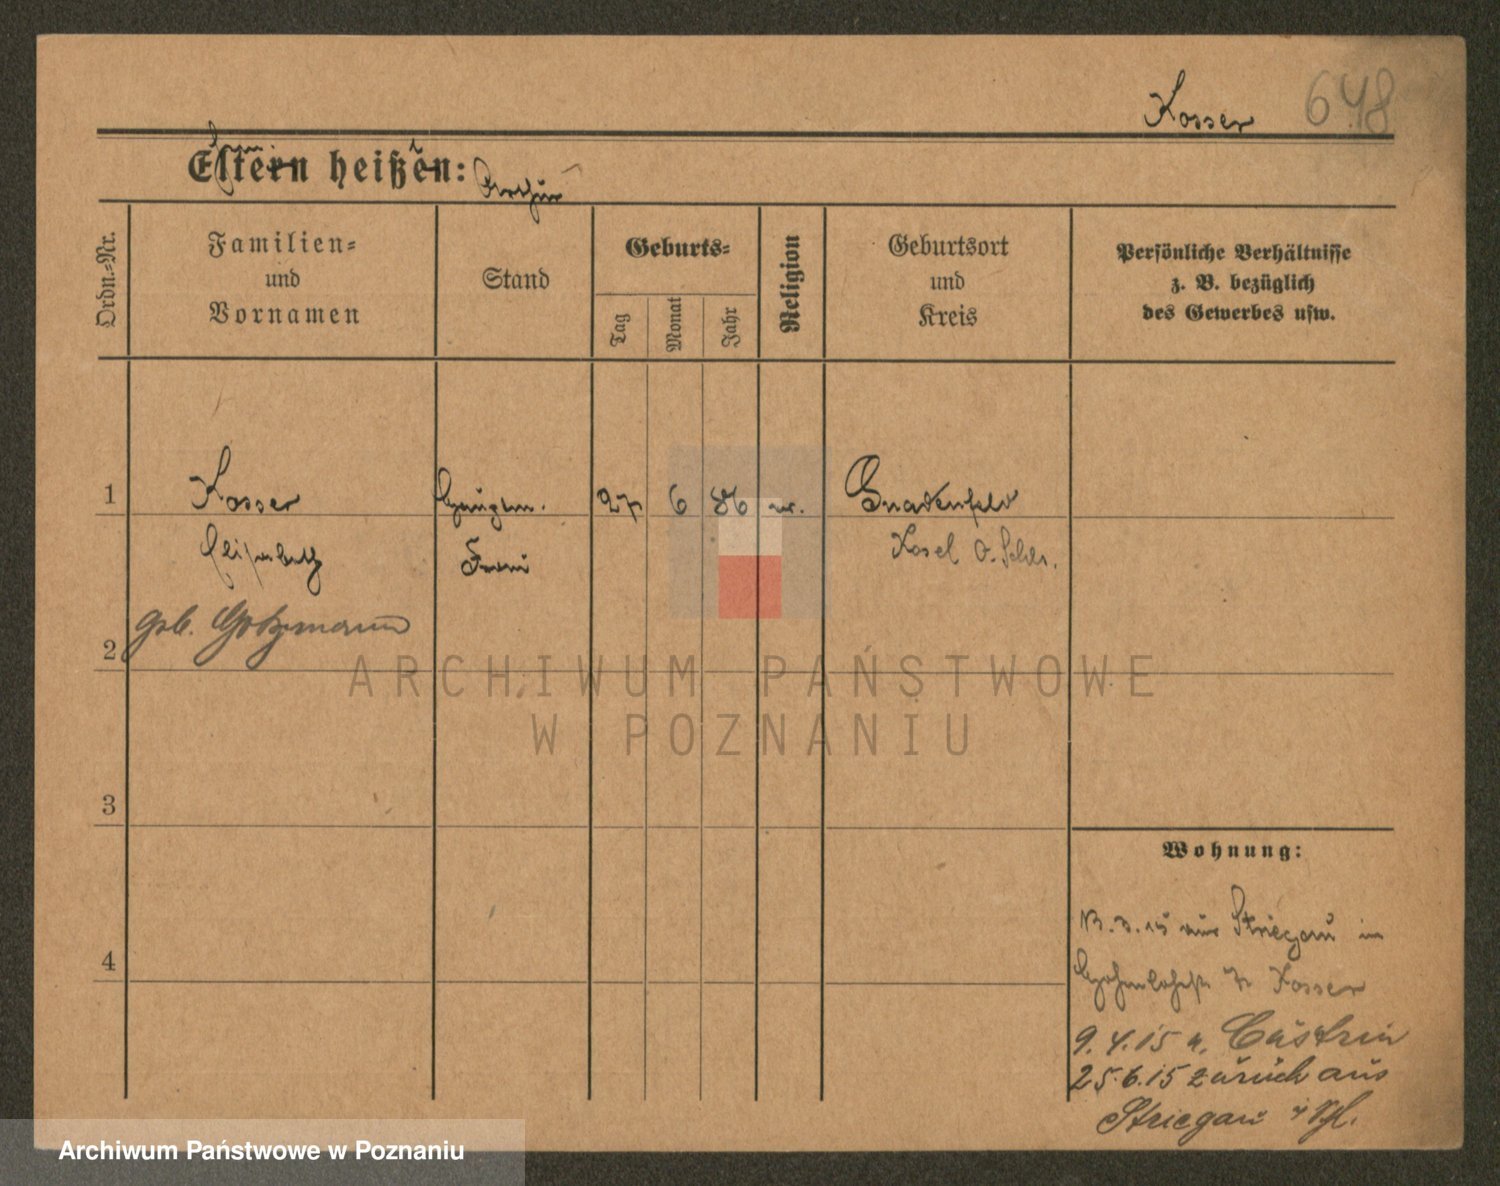 Kosser 648
Eltern heißen: Arthur
Ordn.-Nr.
Familien-
und
Vornamen
Stand
Geburts-
Tag
Monat
Jahr
Religion
Geburtsort
und
Kreis
Persönliche Verhältnisse
z. B. bezüglich
des Gewerbes usw.
1 Kosser Hauptm. 27 6 86 Gnadenfeld
Elisabeth Frau Kosel O. Schles.
geb.
2
ARCHIWUM PAŃSTWOWE
W POZNANIU
3
Wohnung:
3.15 aus Striegau
4
Kosser
9.4.15 n. Cüstrin
25.6.15 zurück aus
Striegau
Archiwum Państwowe w Poznaniu